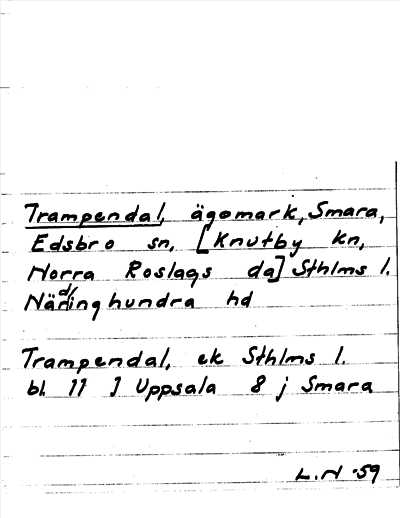 Trampendal, ägomark, Smara,
Edsbro sn, [Knutby kn,
Norra Roslags da] Sthlms l.
Närdinghundra hd
Trampendal, ek Sthlms l.
bl. 11 J Uppsala 8 j Smara
L.N -59